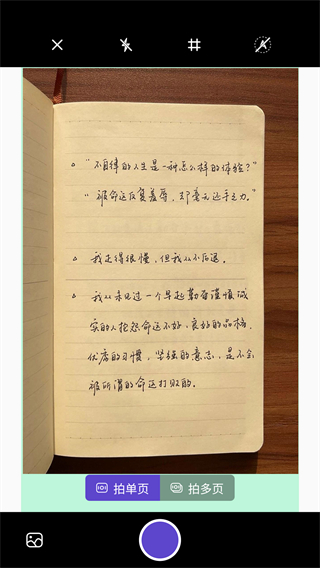 。“不自律的人生是一种怎么样的体验？”
“被命运反复羞辱，却毫无还手之力。”
。我走得很慢，但我从不后退。
。我从未见过一个早起勤奋谨慎诚
实的人抱怨命运不好，良好的品格，
优秀的习惯，坚强的意志，是不会
被所谓的命运打败的。
拍单页 拍多页